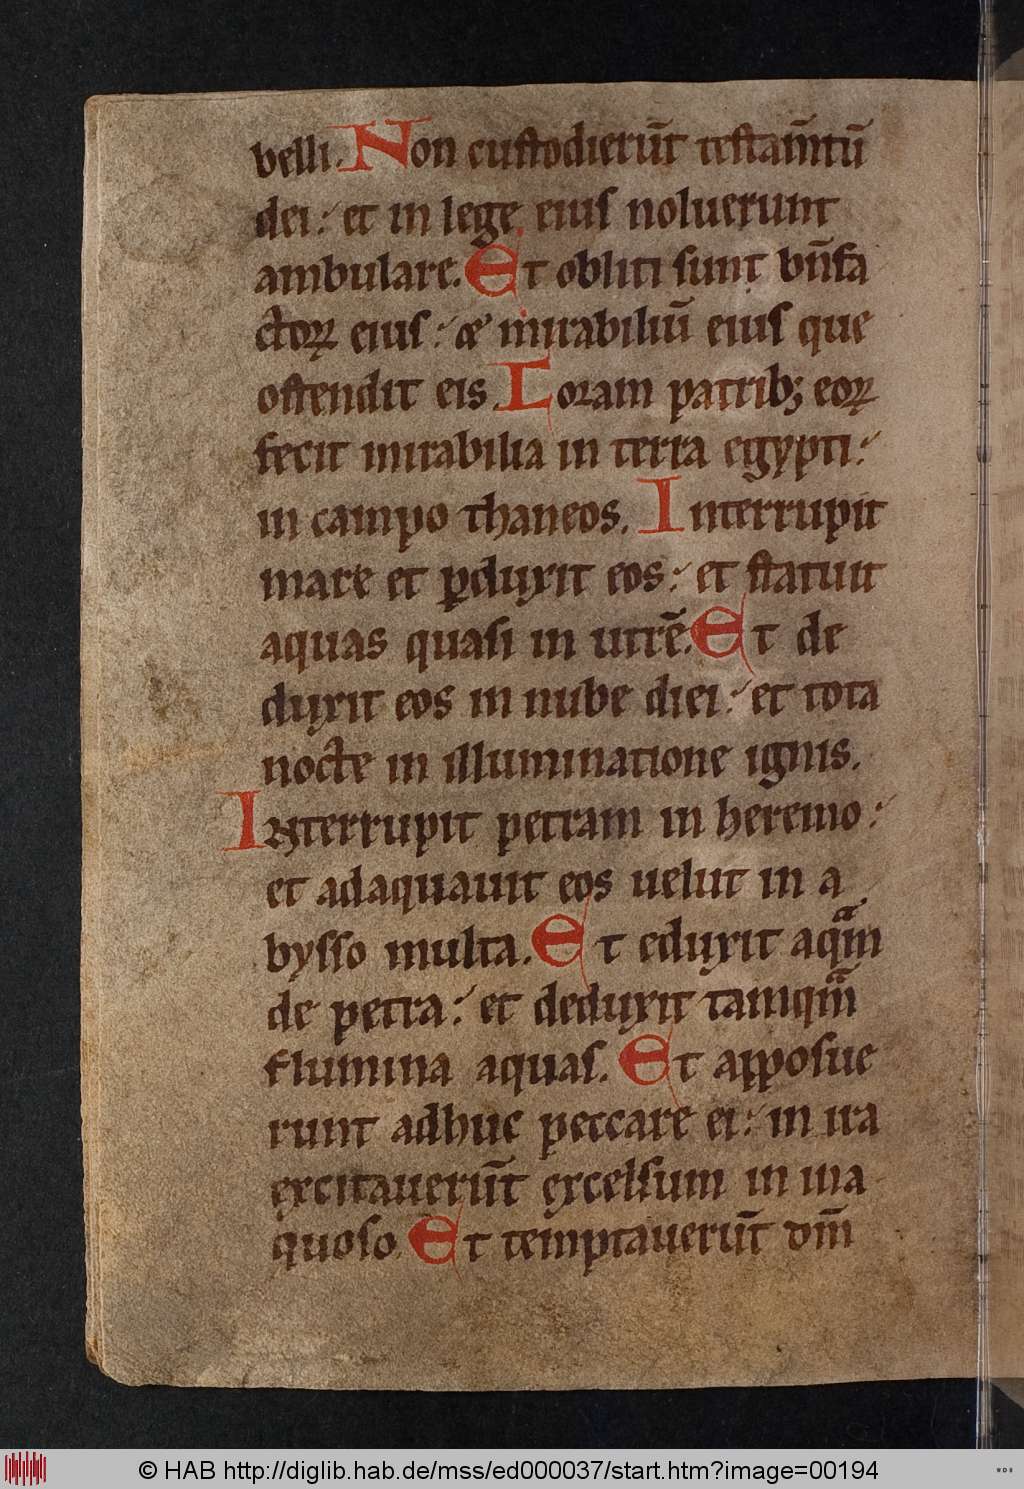 belli. Non custodierūt testam̄tū
dei: et in lege eius noluerunt
ambulare. Et obliti sunt bn̄fa
ctoꝝ eius: & mirabiliū eius que
ostendit eis. Coram patribꝫ eoꝝ
fecit mirabilia in terra egypti:
in campo thaneos. Interrupit
mare et ꝑduxit eos: et statuit
aquas quasi in utrē. Et de
duxit eos in nube diei: et tota
nocte in illuminatione ignis.
Interrupit petram in heremo:
et adaquauit eos uelut in a
bysso multa. Et eduxit aqͣm
de petra: et deduxit tamqͣm
flumina aquas. Et apposue
runt adhuc peccare ei: in ira
excitauerūt excelsum in ina
quoso Et temptauerūt dm̄
© HAB http://diglib.hab.de/mss/ed000037/start.htm?image=00194